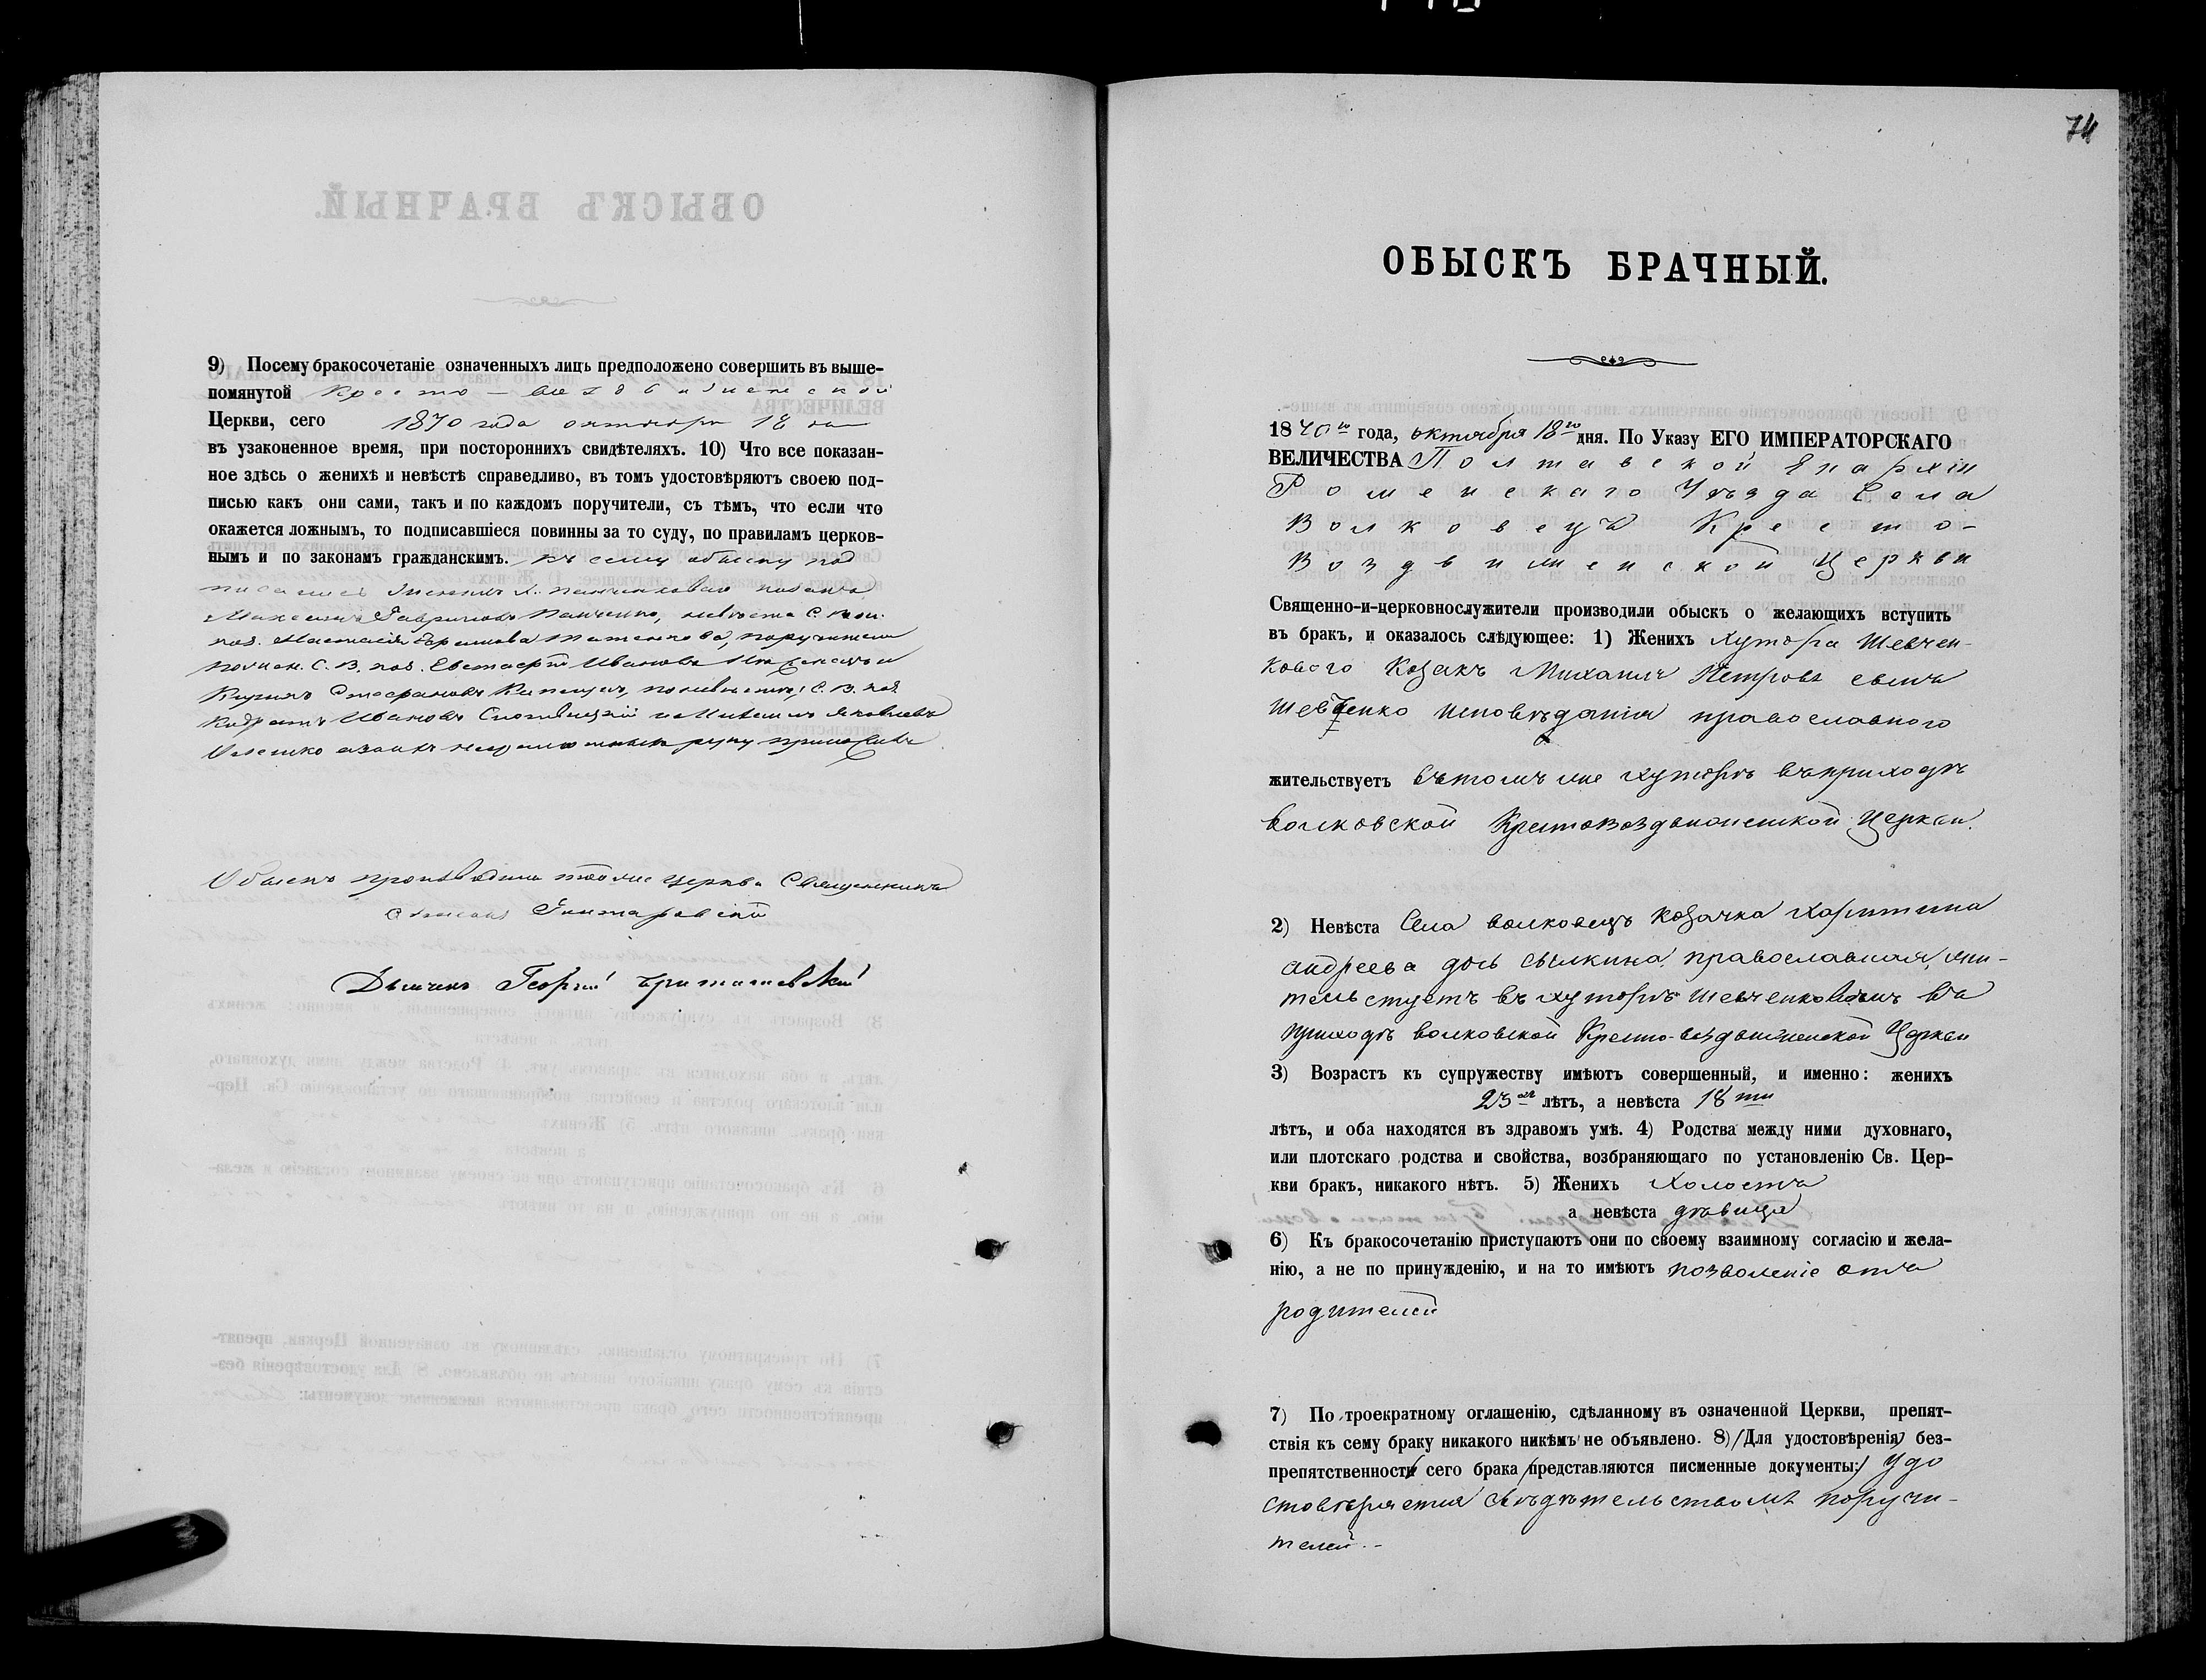 9) Посему бракосочетаніе означенныхъ лицъ предположено совершить въ выше-
помянутой Кресто - воздвиженской
Церкви, сего 1870 года октября 18 го
въ узаконенное время, при постороннихъ свидѣтеляхъ. 10) Что все показан-
ное здѣсь о женихѣ и невѣстѣ справедливо, въ томъ удостовѣряютъ своею под-
писью какъ они сами, такъ и по каждомъ поручители, съ тѣмъ, что если что
окажется ложнымъ, то подписавшіеся повинны за то суду, по правиламъ церков-
нымъ и по законамъ гражданскимъ. къ сему обыску под
козакъ
Максимъ Гавриловъ Панченко, невѣста С. Вол.
коз. Настасія поручители
по жен. С. В. коз. Евстафій Ивановъ и
Стефановъ по невѣстѣ С. В. коз.
Ивановъ Яковлевъ
руку приложилъ
Обыскъ производили тоя же церкви Священникъ
Дьячекъ Георгій
74
ОБЫСКЪ БРАЧНЫЙ.
1870 го года, октября 18 го дня. По Указу ЕГО ИМПЕРАТОРСКАГО
ВЕЛИЧЕСТВА Полтавской Епархіи
Роменскаго Уѣзда Села
Волковецъ Кресто-
Воздвиженской Церкви
Священно-и-церковнослужители производили обыскъ о желающихъ вступить
въ бракъ, и оказалось слѣдующее: 1) Женихъ хутора Шевчен-
кового Козакъ Михаилъ Петровъ сынъ
Шевченко исповѣданія православного
жительствуетъ въ томъ же хуторѣ въ приходѣ
волковской Крестовоздвиженской Церкви.
2) Невѣста Села волковецъ козачка Харитина
андреева дочь православная, жи-
тельствуетъ въ хуторѣ Шевченковомъ въ
приходѣ волковской Кресто-воздвиженской Церкви
3) Возрастъ къ супружеству имѣютъ совершенный, и именно: женихъ
23 лѣтъ, а невѣста 18 ти
лѣтъ, и оба находятся въ здравомъ умѣ. 4) Родства между ними духовнаго,
или плотскаго родства и свойства, возбраняющаго по установленію Св. Цер-
кви бракъ, никакого нѣтъ. 5) Женихъ Холостъ
а невѣста дѣвица
6) Къ бракосочетанію приступаютъ они по своему взаимному согласію и жела-
нію, а не по принужденію, и на то имѣютъ позволеніе отъ
родителей
7) По троекратному оглашенію, сдѣланному въ означенной Церкви, препят-
ствія къ сему браку никакого никѣмъ не объявлено. 8) Для удостовѣренія без-
препятственности сего брака представляются писменные документы: Удо
стовѣряется свѣдѣтельствомъ поручи-
телей.-